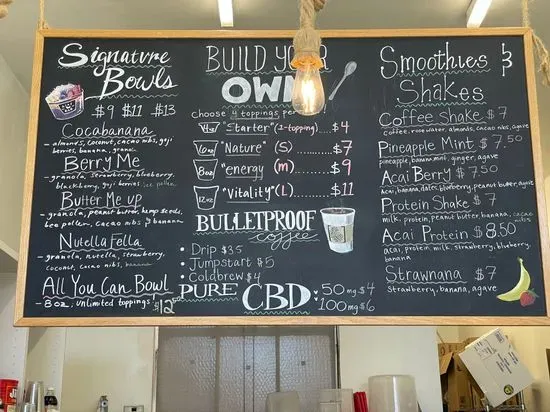 Signature
Bowls
$9 $11 $13
Cocabanana
- almonds, coconut, cacao nibs, goji
berries, banana, granola
Berry Me
- granola, strawberry, blueberry,
blackberry, goji berries, bee pollen
Butter Me up
- granola, peanut butter, hemp seeds,
bee pollen, cacao nibs & banana
Nutella Fella
- granola, nutella, strawberry,
coconut, cacao nibs, banana
All You Can Bowl
- 8oz, unlimited toppings! $12.50
BUILD YOUR
OWN
choose 4 toppings
"Starter" (2-topping) $4
6oz "Nature" (S) $7
8oz "energy" (M) $9
12oz "Vitality" (L) $11
BULLETPROOF
coffee
• Drip $3.5
• Jumpstart $5
• Coldbrew $4
PURE CBD
• 50mg $4
• 100mg $6
Smoothies &
Shakes
Coffee Shake $7
coffee, rosewater, almonds, cacao nibs, agave
Pineapple Mint $7.50
pineapple, banana, mint, ginger, agave
Acai Berry $7.50
Acai, banana, dates, blueberry, peanut butter, agave
Protein Shake $7
milk, protein, peanut butter, banana, cacao nibs
Acai Protein $8.50
acai, protein, milk, strawberry, blueberry,
banana
Strawnana $7
Strawberry, banana, agave